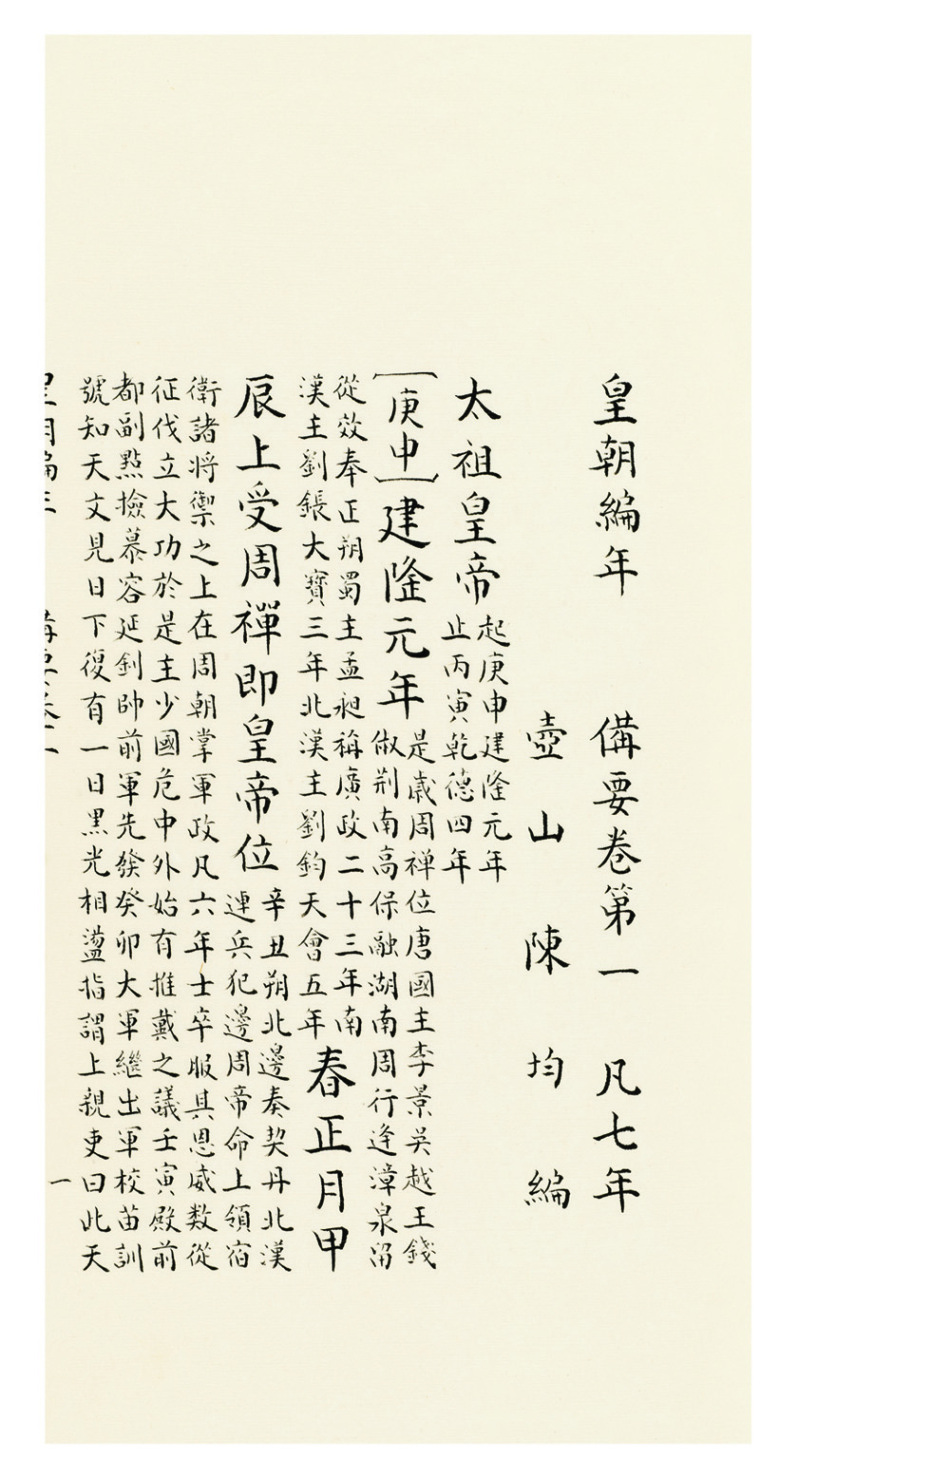 皇朝編年　備要卷第一　凡七年
壺山　陳　均　編
太祖皇帝
起庚申建隆元年
止丙寅乾德四年
庚申
建隆元年
是歲周禅位唐國主李景吴越王錢
俶荆南高保融湖南周行逢漳泉留
從效奉正朔蜀主孟昶稱廣政二十三年南
漢主劉鋹大寶三年北漢主劉鈞天會五年
春正月甲
辰上受周禪即皇帝位
辛丑朔北邊奏契丹北漢
連兵犯邊周帝命上領宿
衛諸将禦之上在周朝掌軍政凡六年士卒服其恩威数從
征伐立大功於是主少國危中外始有推戴之議壬寅殿前
都副點撿慕容延釗帥前軍先發癸卯大軍繼出軍校苗訓
號知天文見日下復有一日黑光相盪指謂上親吏曰此天
一